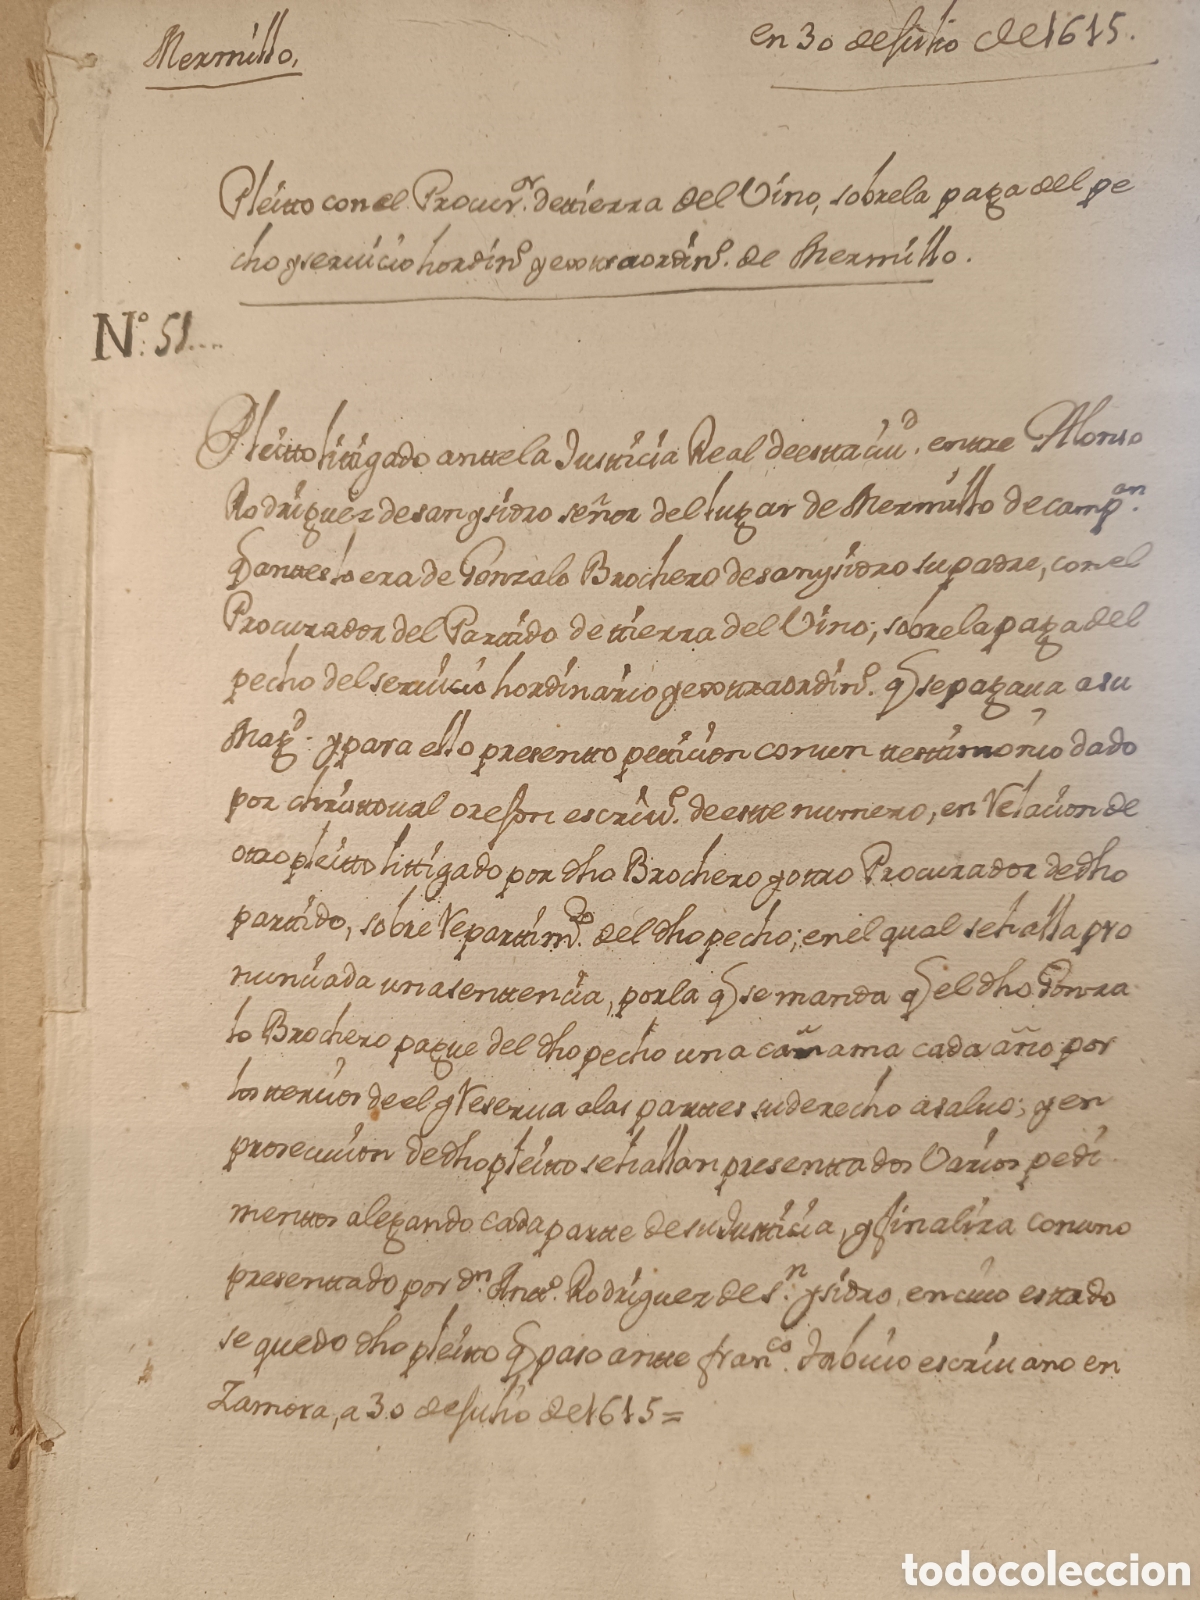 Mermillo,
en 30 de Julio de 1615.
Pleitto con el Procur.or de tierra del Vino, sobre la paga del pe
cho y servicio hordin.o y extraordin.o de Mermillo.
N.o 51....
Pleitto littigado antte la Justticia Real de estta ciu.d entre Alonso
Rodriguez de san ysidro señor del lugar de Mermillo de camp.an
q antes lo era de Gonzalo Brochero de san ysidro su padre, con el
Procurador del Parttido de tierra del Vino; sobre la paga del
pecho del servicio hordinario y exttraordin.o q se pagava a su
Mag.d y para ello presentto petticion con un testtimonio dado
por christtoval orejon escriv.o de estte numero, en relacion de
otro pleitto littigado por dho Brochero y otro Procurador de dho
parttido, sobre reparttim.to del dho pecho; en el qual se halla pro
nunciada una senttencia, por la q se manda q el dho Gonza
lo Brochero pague del dho pecho una cañama cada año por
los tercios de el y reserva a las parttes su derecho a salvo; y en
prosecucion de dho pleitto se hallan presenttados Varios pedi
menttos alegando cada partte de su Justticia, y finaliza con uno
presenttado por d.n Antt.o Rodriguez de s.n ysidro, en cuio estado
se quedo dho pleitto q paso antte fran.co escrivano en
Zamora, a 30 de Julio de 1615=
todocoleccion